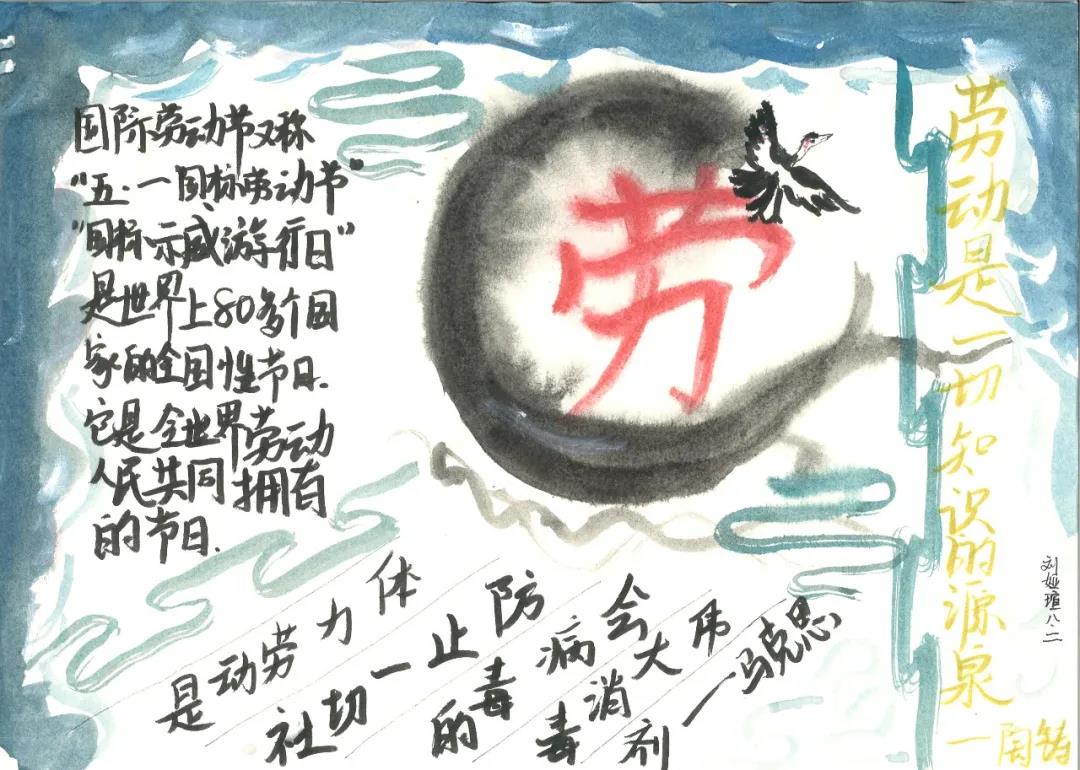 国际劳动节又称
“五·一国际劳动节”
“国际示威游行日”
是世界上80多个国
家的全国性节日.
它是全世界劳动
人民共同拥有
的节日.
劳
体力劳动是
防止一切社
会病毒的
伟大消毒剂
—马克思
劳动是一切知识的源泉
—陶铸
刘娅瑄八.二